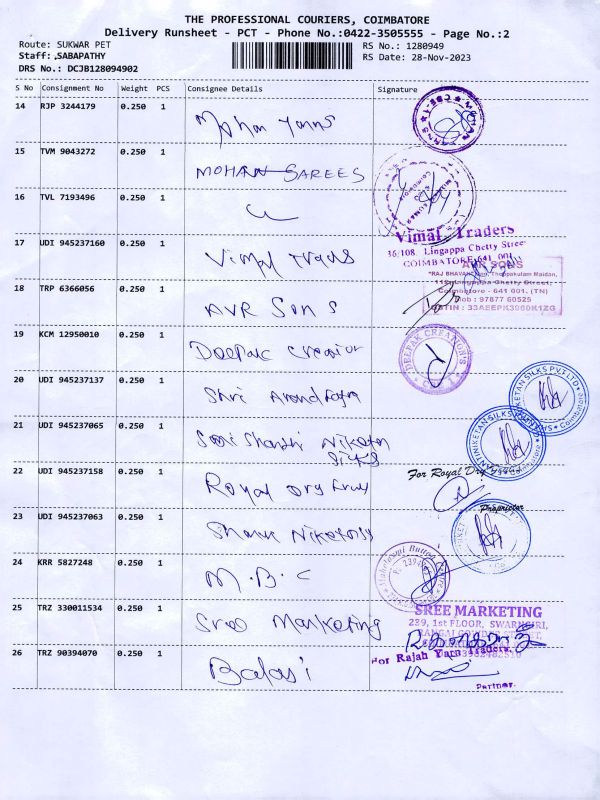 THE PROFESSIONAL COURIERS, COIMBATORE
Delivery Runsheet - PCT - Phone No.:0422-3505555 - Page No.:2
Route: SUKWAR PET
RS No.: 1280949
Staff: ,SABAPATHY
RS Date: 28-Nov-2023
DRS No.: DCJB128094902
S No Consignment No Weight PCS Consignee Details Signature
14 RJP 3244179 0.250 1 Mohan Yarns
15 TVM 9043272 0.250 1 MOHAN SAREES
16 TVL 7193496 0.250 1
Vimal Traders
36/108, Lingappa Chetty Street
COIMBATORE-641 001.
17 UDI 945237160 0.250 1 Vimal Trads
AVR SONS
"RAJ BHAVAN" Theppakulam Maidan,
Lingappa Chetty Street,
Coimbatore - 641 001. (TN)
Mob : 97877 60525
18 TRP 6366056 0.250 1 AVR Sons
19 KCM 12950010 0.250 1 Deepak Creation
DEEPAK CREATION'S
20 UDI 945237137 0.250 1 Shri
21 UDI 945237065 0.250 1 Shanthi Niketan
Silks
22 UDI 945237158 0.250 1 Royal Dry Fruit
For Royal Dry
Proprietor
23 UDI 945237063 0.250 1
24 KRR 5827248 0.250 1 M.B.C
25 TRZ 330011534 0.250 1 Sree Marketing
SREE MARKETING
239, 1st FLOOR, SWARNGIRI,
26 TRZ 90394070 0.250 1 Balaji
For Rajah Yarn Traders,
Partner.